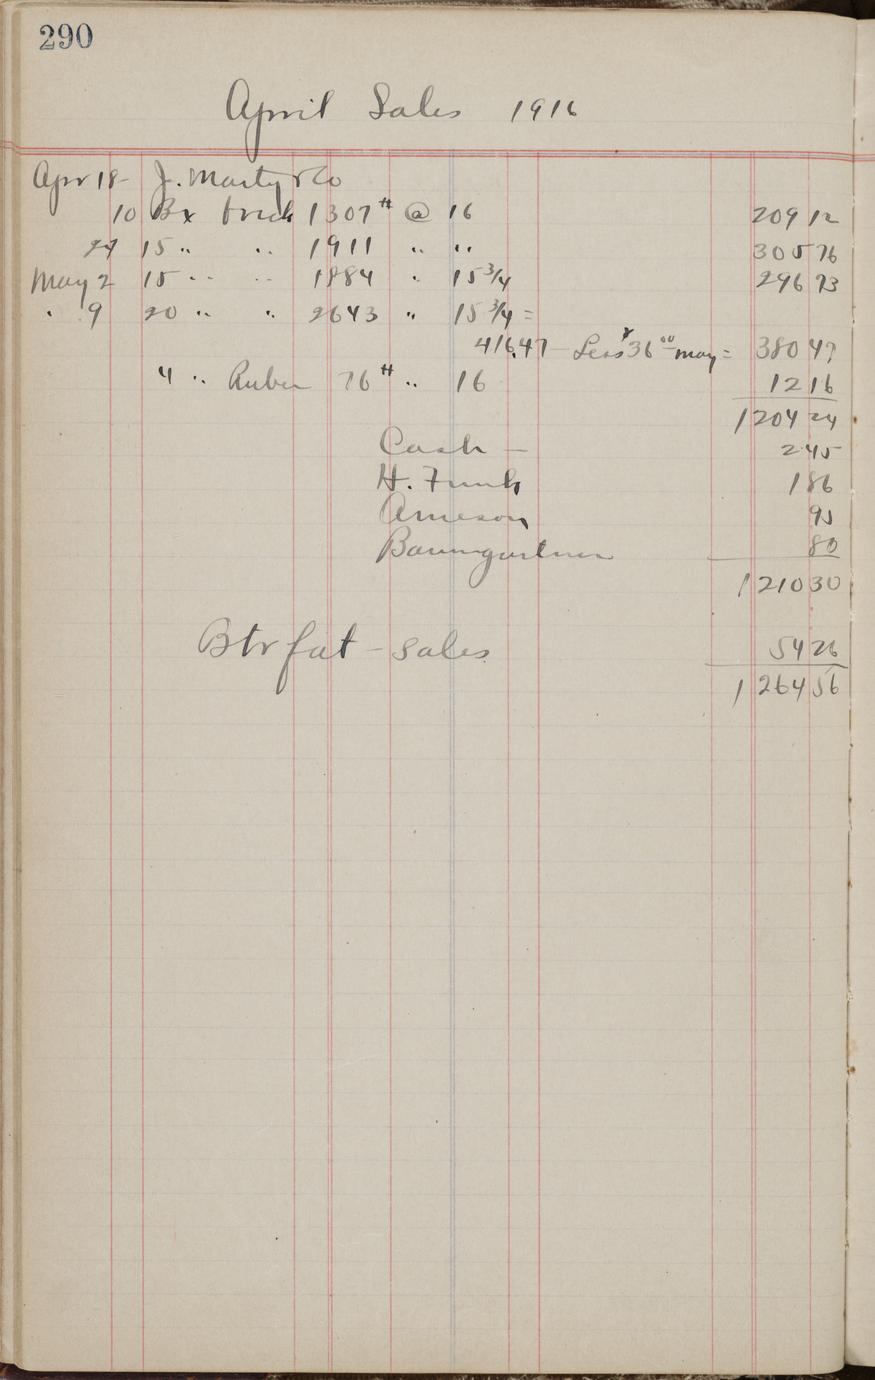 290
April Sales 1916
Apr 18 - J. Marty & Co
10 Bx Brick 1307 # @ 16 209 12
27 15 " " 1911 " " 305 76
May 2 15 " " 1884 " 15 3/4 296 73
" 9 20 " " 2643 " 15 3/4 =
416.47 - Less $36 00 may = 380 47
4 " 76 # " 16 12 16
1204 24
Cash - 2 45
H. Funk 1 86
Arneson 95
Baumgartner 80
1210 30
Btr fat - sales 54 26
1264 56